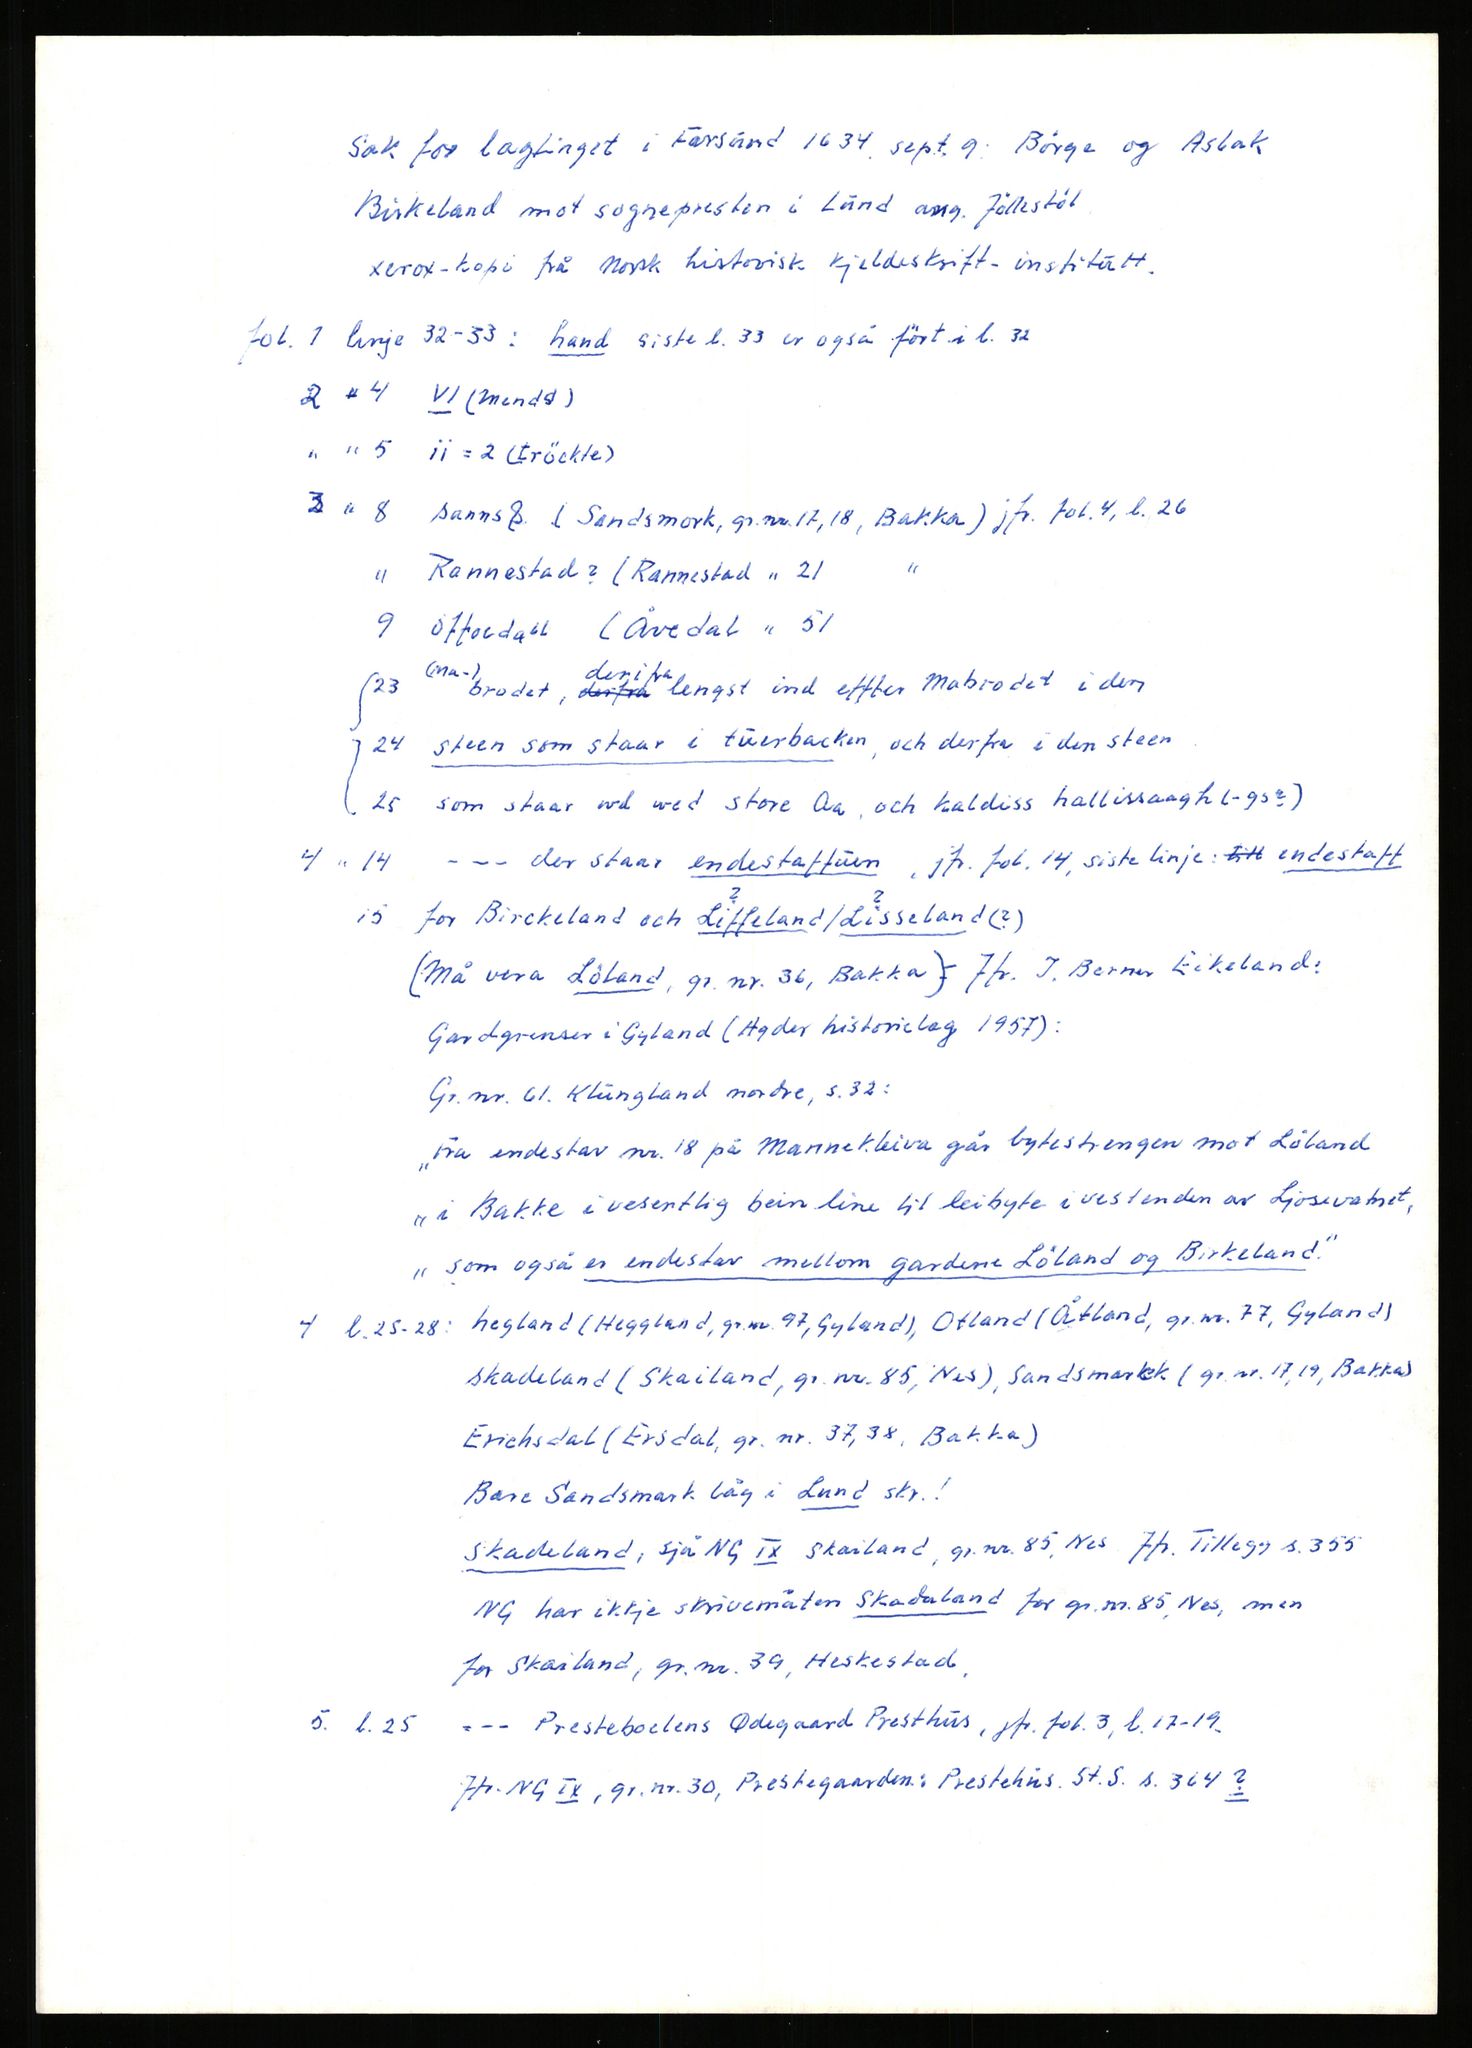 Sak for lagtinget i Farsund 1634. sept. 9. Börge og Aslak
Birkeland mot soknepresten i Lund ang. Jöllestöl
xerox-kopi frå Norsk historisk kjeldeskrift-institutt.
fol. 1 linje 32-33: hand siste l. 33 er også fört i l. 32
2 " 4 VI (mends)
" " 5 ii = 2 (tröckte)
3 " 8 sanns (Sandsmork, gr.nr. 17, 18, Bakka) jfr. fol. 4, l. 26
" Rannestad? (Rannestad " 21 "
9 (Åvedal " 51
23 (ma-)brodet, derfra denifra lengst ind effter Mabrodet i den
24 steen som staar i tuerbacken, och derfra i den steen
25 som staar wed store Aa, och kaldiss hallissaagh (-gs?)
4 " 14 --- der staar endestaffuen, jfr. fol. 14, siste linje: endestaff
15 for Birckeland och Liffeland?/Lisseland? (?)
(Må vera Löland, gr. nr. 36, Bakka) - Jfr. J. Berner Eikeland:
Gardgrenser i Gyland (Agder historielag 1957):
Gr. nr. 61. Klungland nordre, s. 32:
"Fra endestav nr. 18 på Mannekleiva går bytestrengen mot Löland
" i Bakke i vesentlig bein line til leibyte i vestenden av Ljosevatnet,
" som også er endestav mellom gardene Löland og Birkeland."
4 l. 25-28: hegland (Heggland, gr.nr. 97, Gyland), Otland (Åtland, gr. nr. 77, Gyland)
skadeland (Skailand, gr. nr. 85, Nes), Sandsmarck (gr. nr. 17, 19, Bakka)
Erichsdal (Ersdal, gr. nr. 37, 38, Bakka)
Bare Sandsmark låg i Lund skr.!
Skadeland, sjå NG IX Skailand, gr. nr. 85, Nes Jfr. Tillegg s. 355
NG har ikkje skrivemåten Skadaland for gr. nr. 85, Nes, men
for Skailand, gr. nr. 39, Heskestad.
5. l. 25 --- Presteboelens Ødegaard Presthus, jfr. fol. 3, l. 17-19.
Jfr. NG IX, gr. nr. 30, Prestegaarden: Prestehus. St. S. s. 364 ?